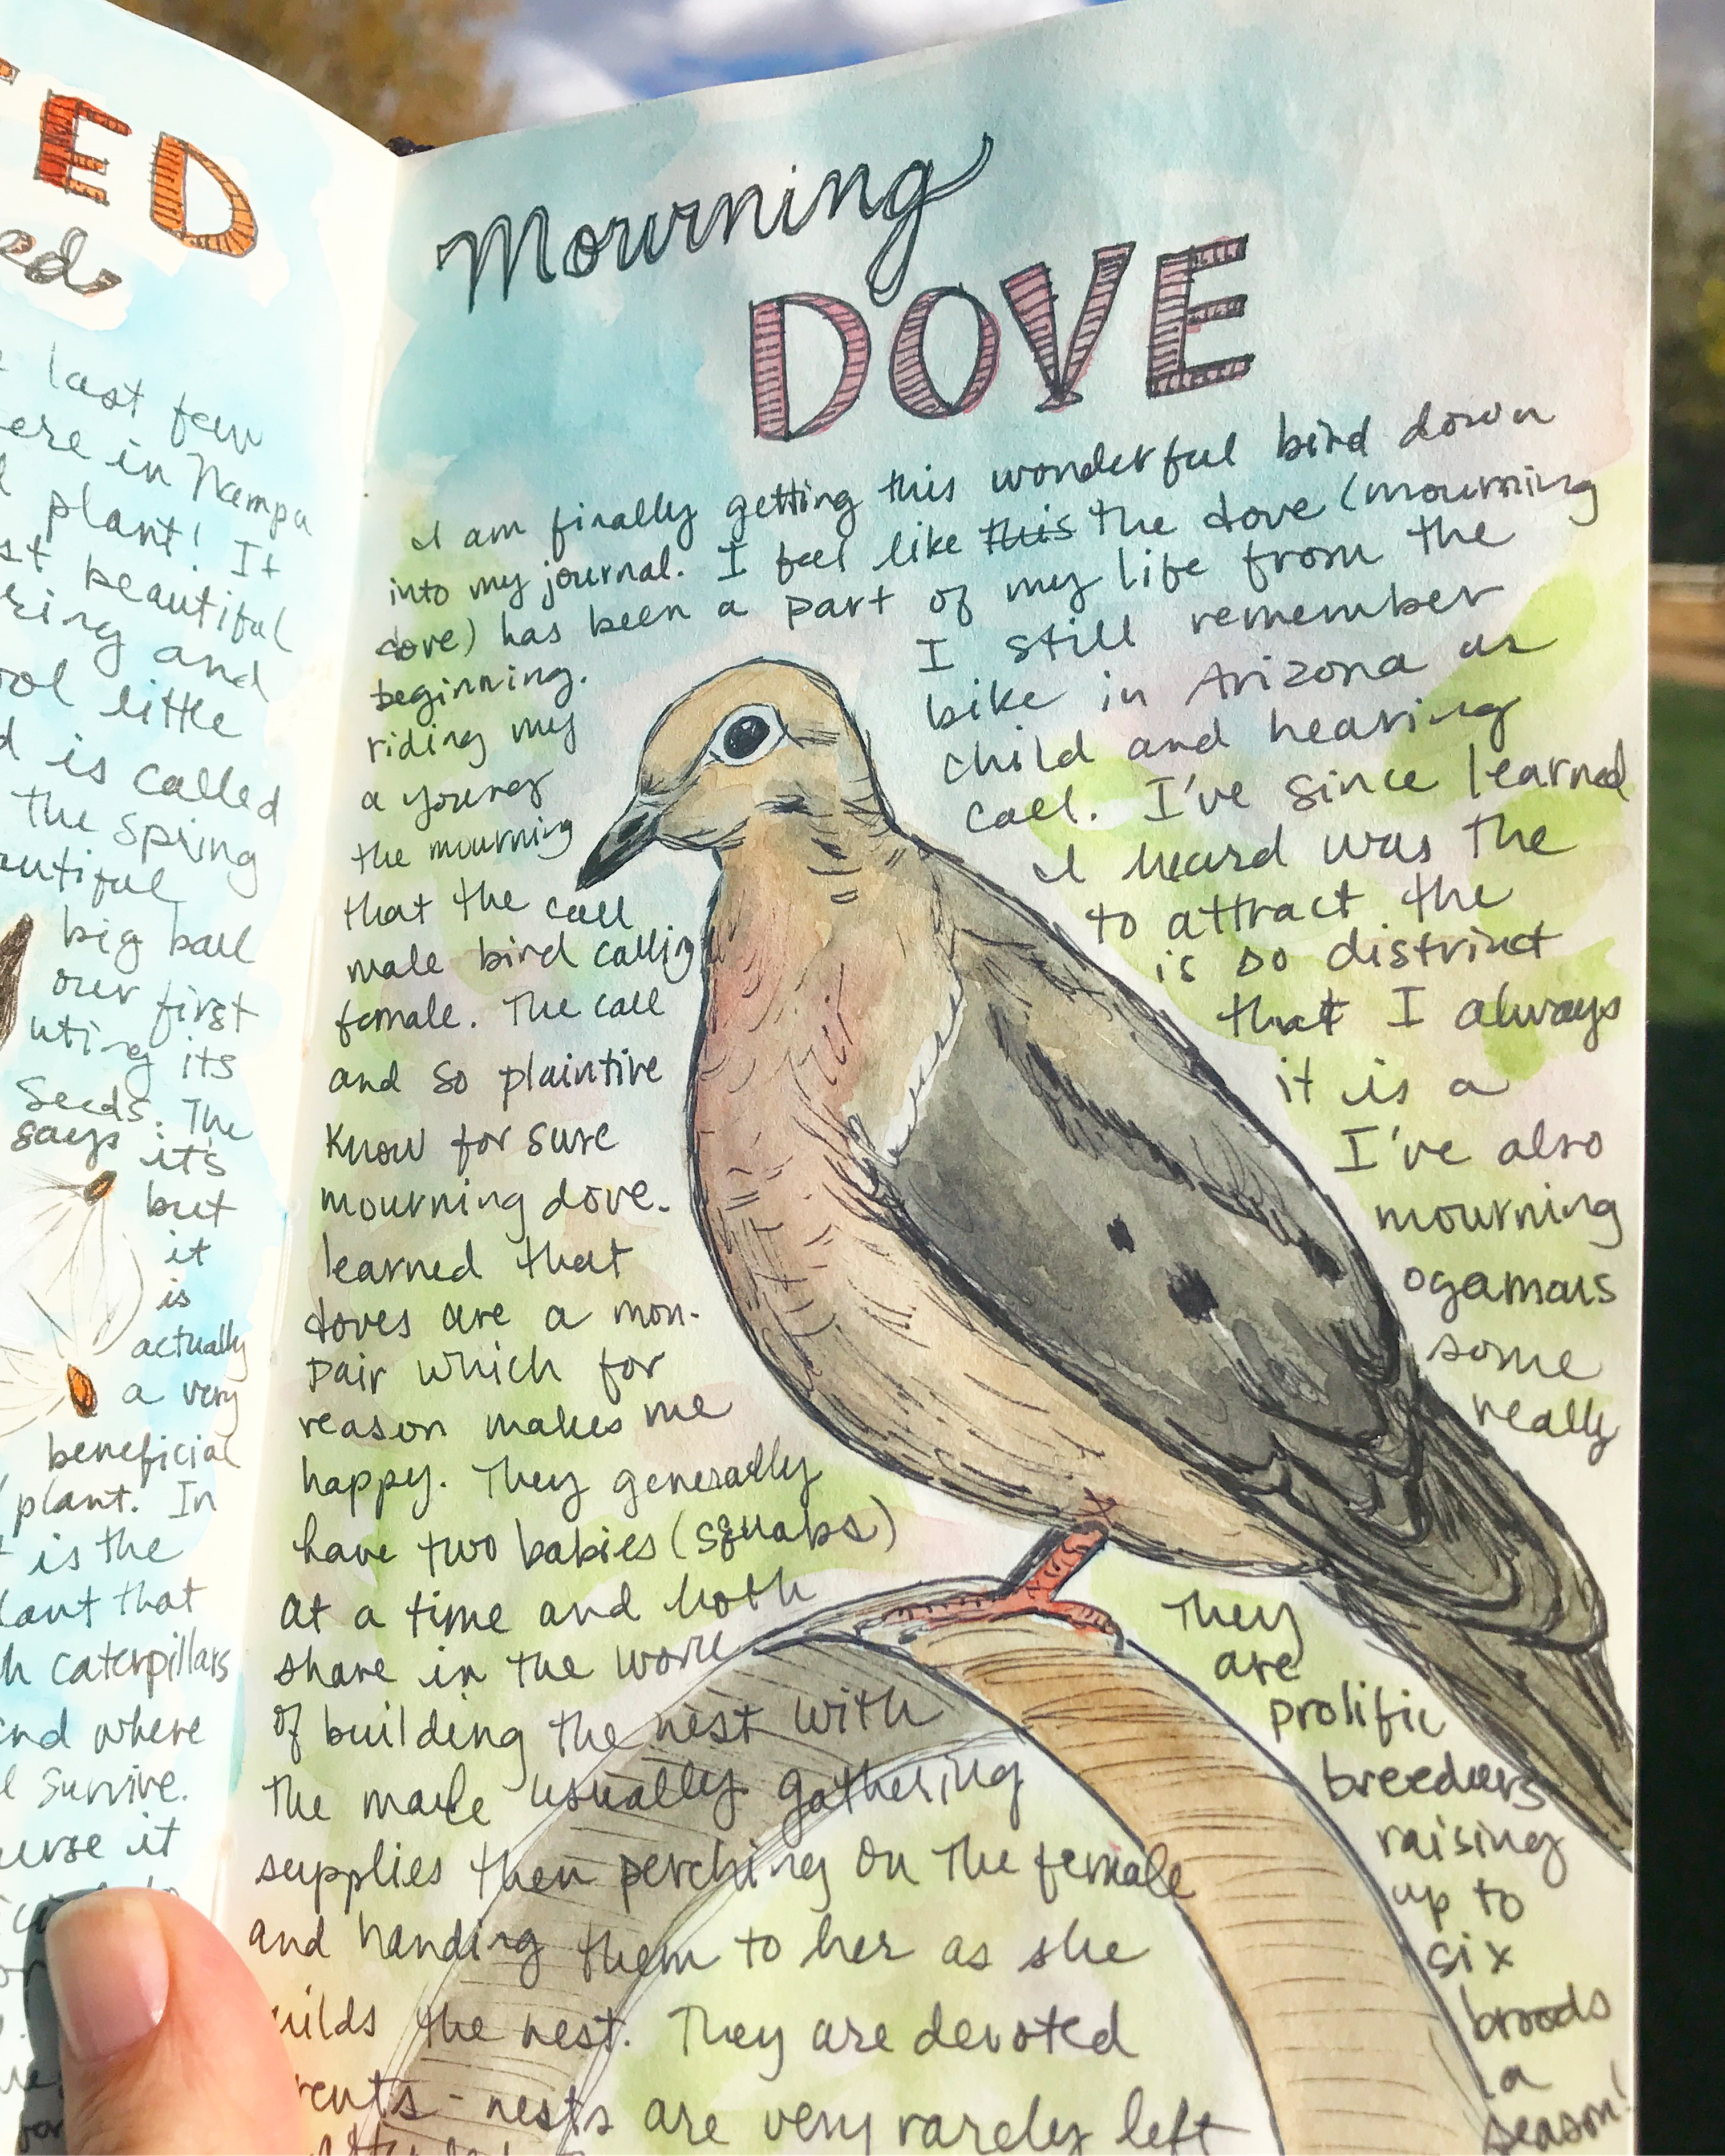 ED
ed
last few
ere in Nampa
plant! It
st beautiful
ring and
ool little
d is called
the spring
autiful
big ball
our first
uting its
Seeds. The
says it's
but
it
is
actually
a very
beneficial
plant. In
is the
lant that
h caterpillars
and where
survive.
erse it
Mourning
DOVE
I am finally getting this wonderful bird down
into my journal. I feel like this the dove (mourning
dove) has been a part of my life from the
beginning. I still remember
riding my bike in Arizona as
a young child and hearing
the mourning call. I've since learned
that the call I heard was the
male bird calling to attract the
female. The call is so distrinct
and so plaintive that I always
know for sure it is a
mourning dove. I've also
learned that mourning
doves are a mon- ogamous
pair which for some
reason makes me really
happy. They generally
have two babies (squabs)
at a time and both
share in the work
of building the nest with
the male usually gathering
supplies then perching on the female
and handing them to her as she
uilds the nest. They are devoted
rents - nests are very rarely left
They
are
prolific
breeders
raising
up to
six
broods
a
season!